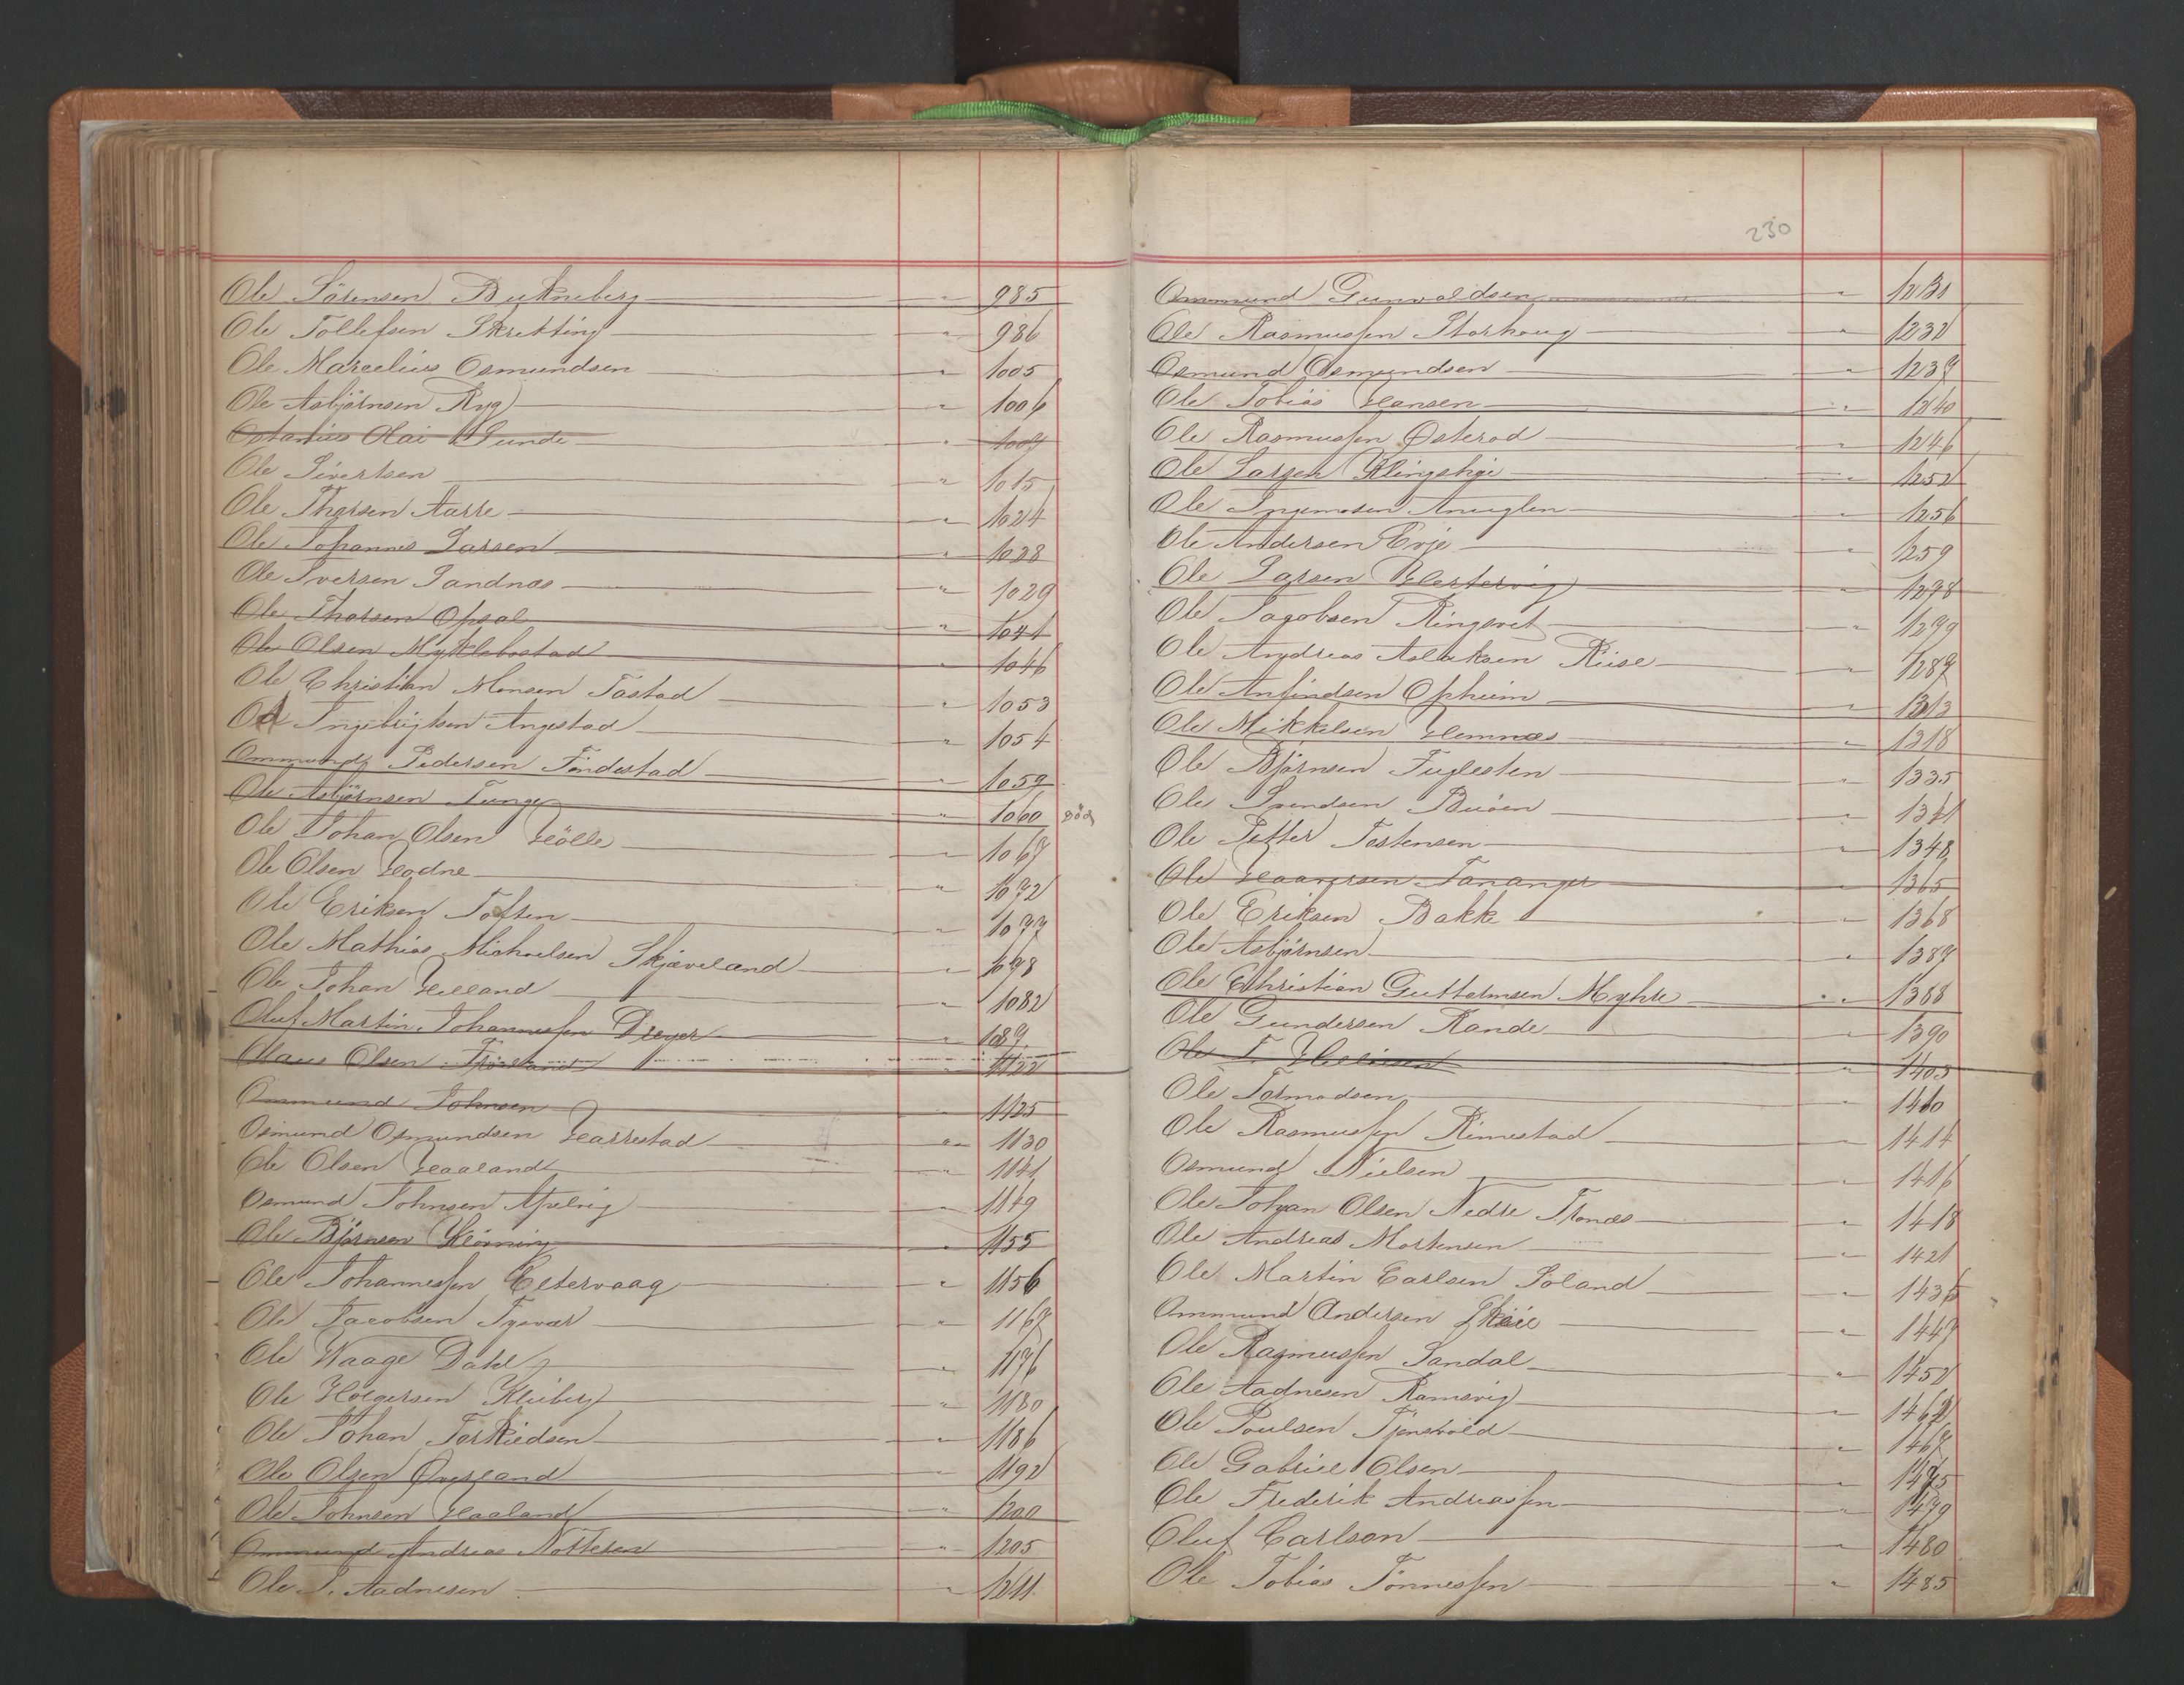 Ole Sörensen Bukneberg " 985
Ole Tollefsen Skretting " 986
Ole Marcelius Osmundsen " 1005
Ole Asbjörnsen Ryg " 1006
Octavius Olai Sunde " 1007
Ole Sivertsen " 1015
Ole Thorsen Aarre " 1024
Ole Johannes Larsen " 1028
Ole Iversen Sandnæs " 1029
Ole Thorsen Opsal " 1041
Ole Olsen Myklebostad " 1046
Ole Christian Monsen Tastad " 1053
Od Ingebrigtsen Angestad " 1054
Ommund Pedersen Findestad " 1059
Ole Asbjörnsen Tunge " 1060 död
Ole Johan Olsen Hölle " 1067
Ole Olsen Hodne " 1072
Ole Eriksen Toften " 1077
Ole Mathias Michaelsen Skjæveland " 1078
Ole Johan Helland " 1082
Oluf Martin Johannessen Dreyer " 1089
Olaus Olsen " 1122
Ommund Johnsen " 1125
Osmund Osmundsen Harrestad " 1130
Ole Olsen Haaland " 1141
Osmund Johnsen Apelvig " 1149
Ole Björnsen Kleivning " 1155
Ole Johannessen Eltervaag " 1156
Ole Jacobsen Tysvær " 1167
Ole Waage Dahl " 1176
Ole Holgersen Kleiberg " 1180
Ole Johan Torkildsen " 1186
Ole Olsen Overland " 1192
Ole Johnsen Haaland " 1200
Ommund Andreas " 1205
Ole J. Aadnesen " 1211
230
Ommund Gunvaldsen " 1231
Ole Rasmussen Storhoug " 1232
Osmund Osmundsen " 1239
Ole Tobias Hansen " 1240
Ole Rasmussen Österod " 1246
Ole Larsen " 1252
Ole Ingemosen Anuglen " 1256
Ole Andersen Evje " 1259
Ole Larsen Hestervig " 1278
Ole Jagobsen " 1299
Ole Andreas Aslaksen Riise " 1287
Ole Anfindsen Opheim " 1313
Ole Mikkelsen Hemnæs " 1318
Ole Björnsen Fuglesten " 1335
Ole Svendsen Buöen " 1341
Ole Petter Tostensen " 1348
Ole Haaversen Tananger " 1365
Ole Eriksen Bakke " 1368
Ole Asbjörnsen " 1387
Ole Christian Guttormsen Myhre " 1388
Ole Gundersen Rande " 1390
Ole T. " 1405
Ole Tormodsen " 1410
Ole Rasmussen Rimestad " 1414
Osmund Nielsen " 1416
Ole Johan Olsen Nedre Tronæs " 1418
Ole Andreas Mortensen " 1421
Ole Martin Carlsen Soland " 1435
Ommund Andersen Skeie " 1447
Ole Rasmussen Sandal " 1452
Ole Aadnesen Ramsvig " 1462
Ole Poulsen Tjensvold " 1467
Ole Gabriel Olsen " 1475
Ole Frederik Andreassen " 1479
Oluf Carlson " 1480
Ole Tobias Tönnessen " 1485